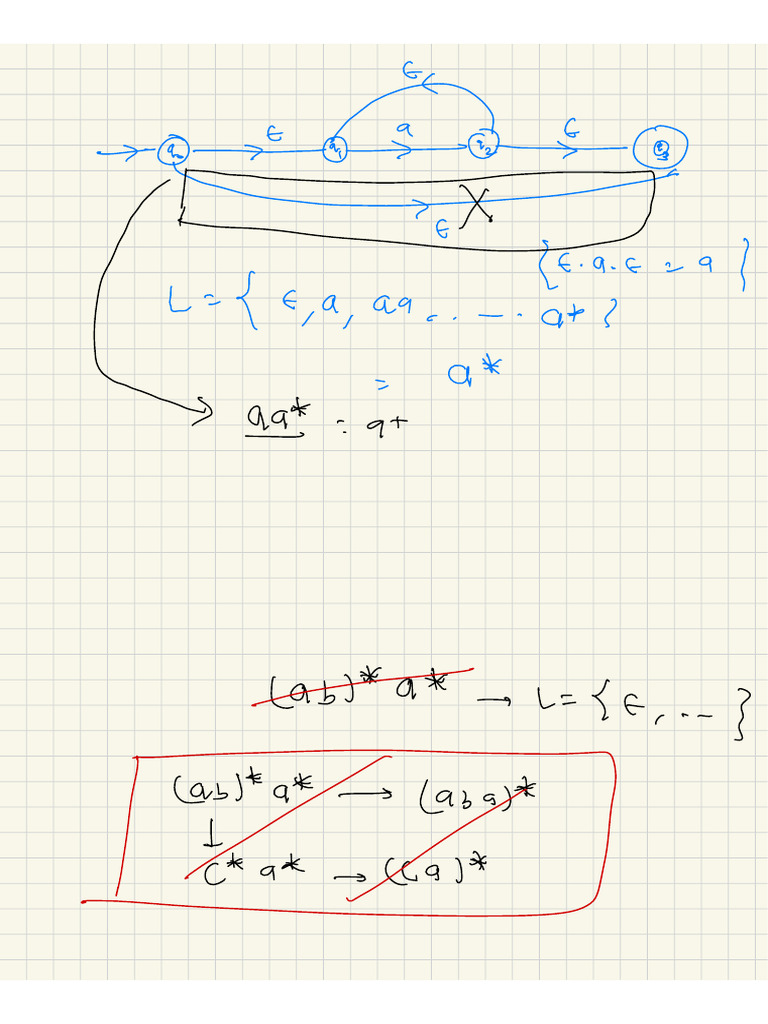 ϵ
ϵ a ϵ
q₀ q₁ q₂ q₃
ϵ
{ϵ.a.ϵ = a}
L = { ϵ, a, aa, . . — . a* }
= a*
aa* : a+
(ab)* a* → L = { ϵ, ... }
(ab)* a* → (aba)*
↓
C* a* → (Ca)*